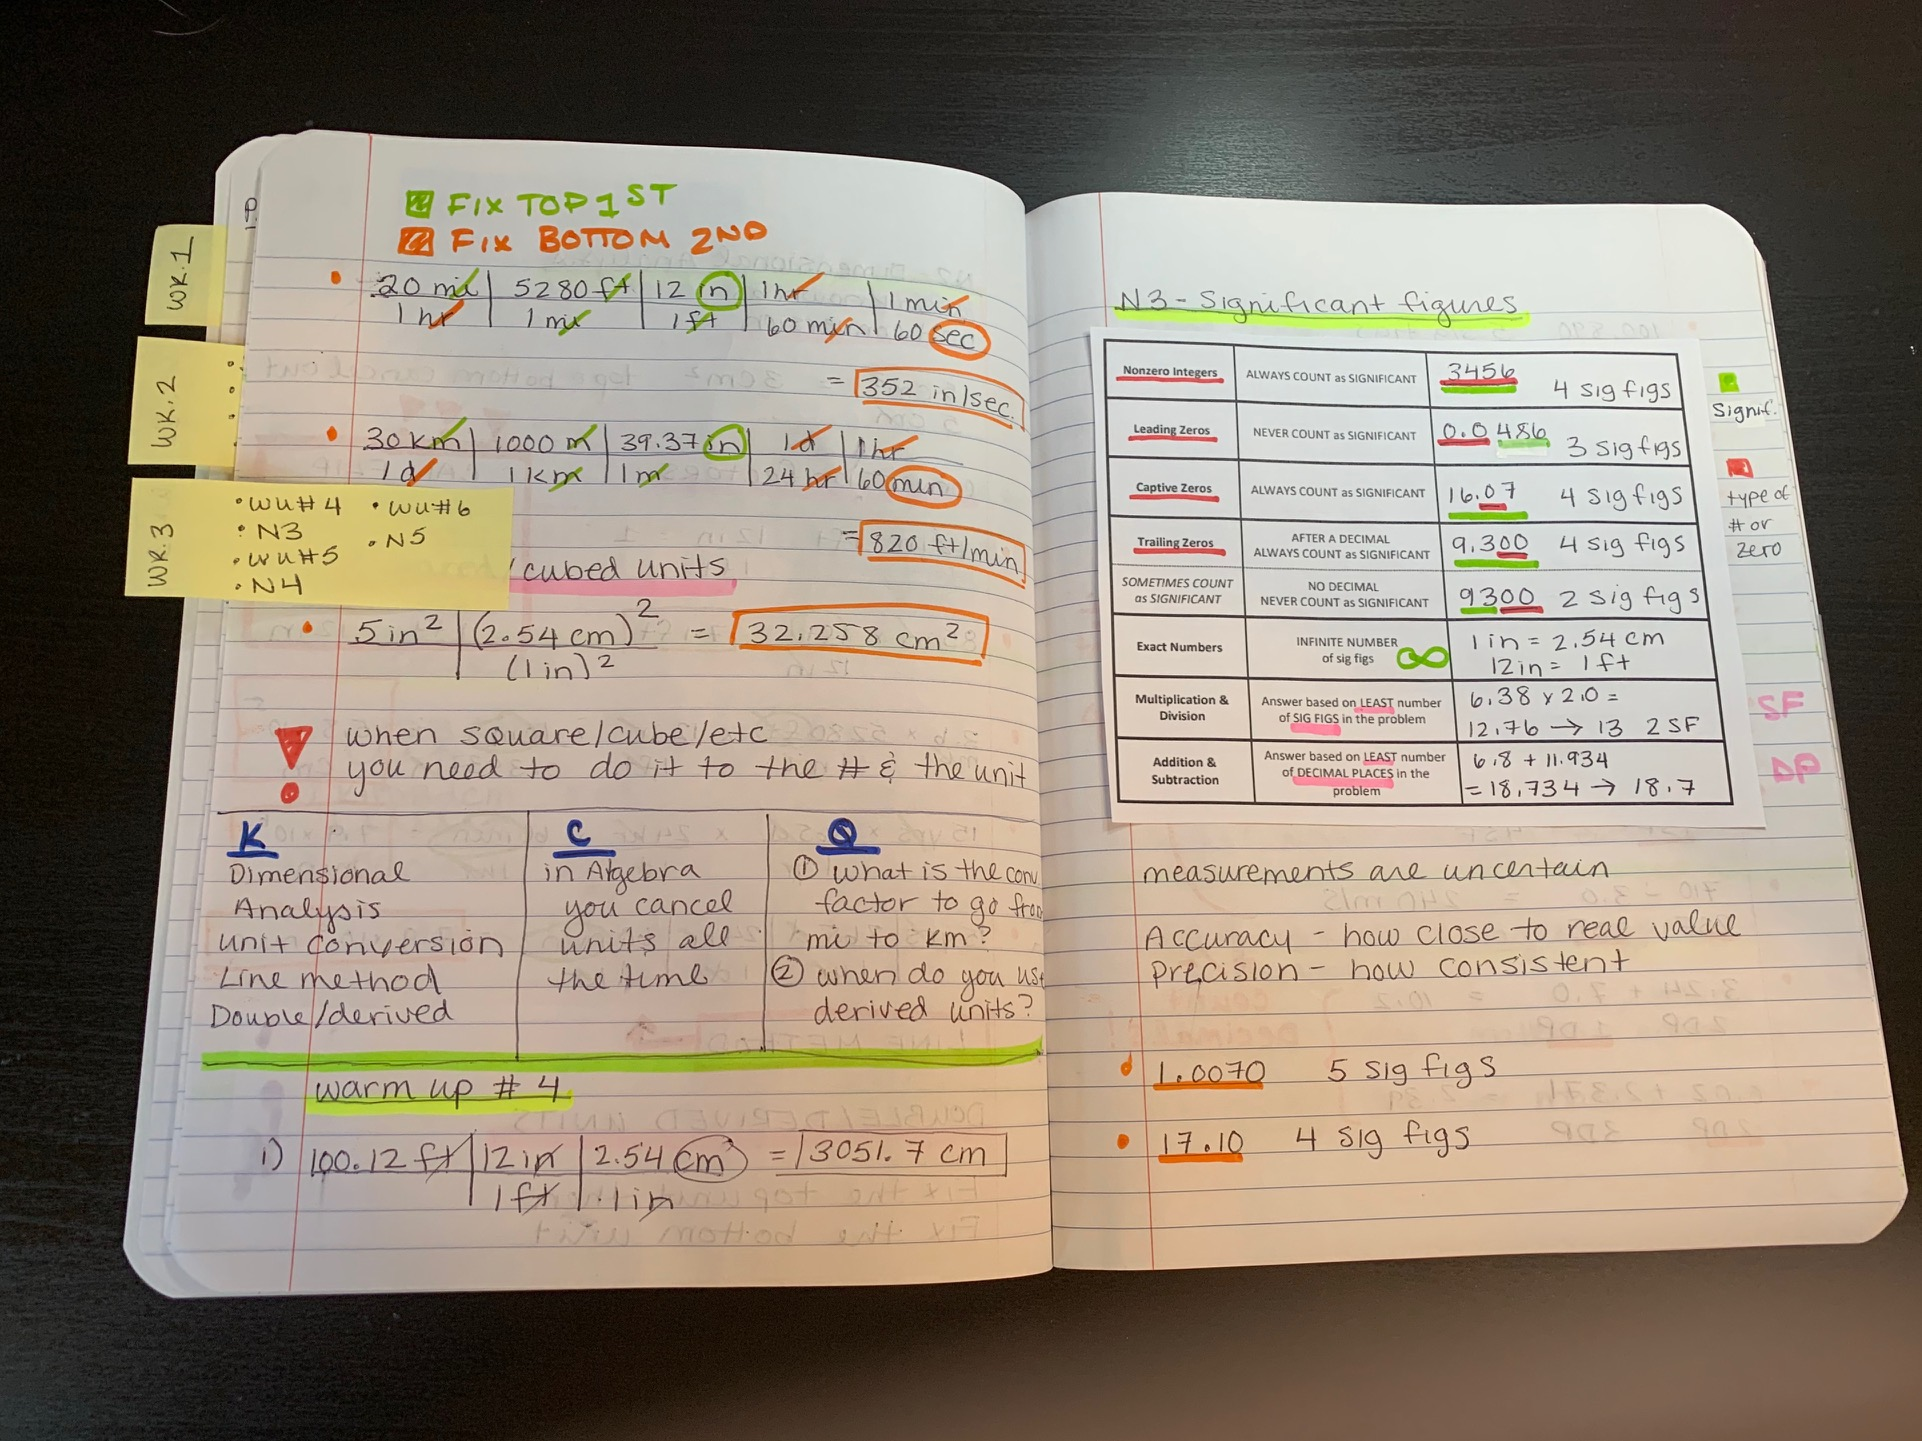 WK.1
WK.2
WK.3
P.
FIX TOP 1ST
FIX BOTTOM 2ND
20 mi | 5280 ft | 12 in | 1hr | 1 min
1 hr | 1 mi | 1 ft | 60 min | 60 sec
= 352 in/sec.
30 km | 1000 m | 39.37 in | 1d | 1hr
1d | 1 km | 1m | 24 hr | 60 min
= 820 ft/min
• WU#4 • WU#6
• N3 • N5
• WU#5
• N4
/cubed units
5 in² | (2.54 cm)² = 32.258 cm²
(1 in)²
! when square/cube/etc
you need to do it to the # & the unit
K
Dimensional
Analysis
unit conversion
Line method
Double/derived
C
in Algebra
you cancel
units all
the time
Q
① what is the conv.
factor to go from
mi to km?
② when do you use
derived units?
warm up # 4
1) 100.12 ft | 12 in | 2.54 cm = 3051.7 cm
1 ft | 1 in
N3 - Significant figures
Nonzero Integers ALWAYS COUNT as SIGNIFICANT 3456 4 sig figs
Leading Zeros NEVER COUNT as SIGNIFICANT 0.0486 3 sig figs
Captive Zeros ALWAYS COUNT as SIGNIFICANT 16.07 4 sig figs
Trailing Zeros AFTER A DECIMAL
ALWAYS COUNT as SIGNIFICANT 9.300 4 sig figs
SOMETIMES COUNT
as SIGNIFICANT NO DECIMAL
NEVER COUNT as SIGNIFICANT 9300 2 sig figs
Exact Numbers INFINITE NUMBER
of sig figs ∞ 1 in = 2.54 cm
12in = 1 ft
Multiplication &
Division Answer based on LEAST number
of SIG FIGS in the problem 6.38 x 2.0 =
12.76 → 13 2 SF
Addition &
Subtraction Answer based on LEAST number
of DECIMAL PLACES in the
problem 6.8 + 11.934
= 18.734 → 18.7
Signif.
type of
# or
zero
SF
DP
measurements are uncertain
Accuracy - how close to real value
precision - how consistent
1.0070 5 sig figs
17.10 4 sig figs